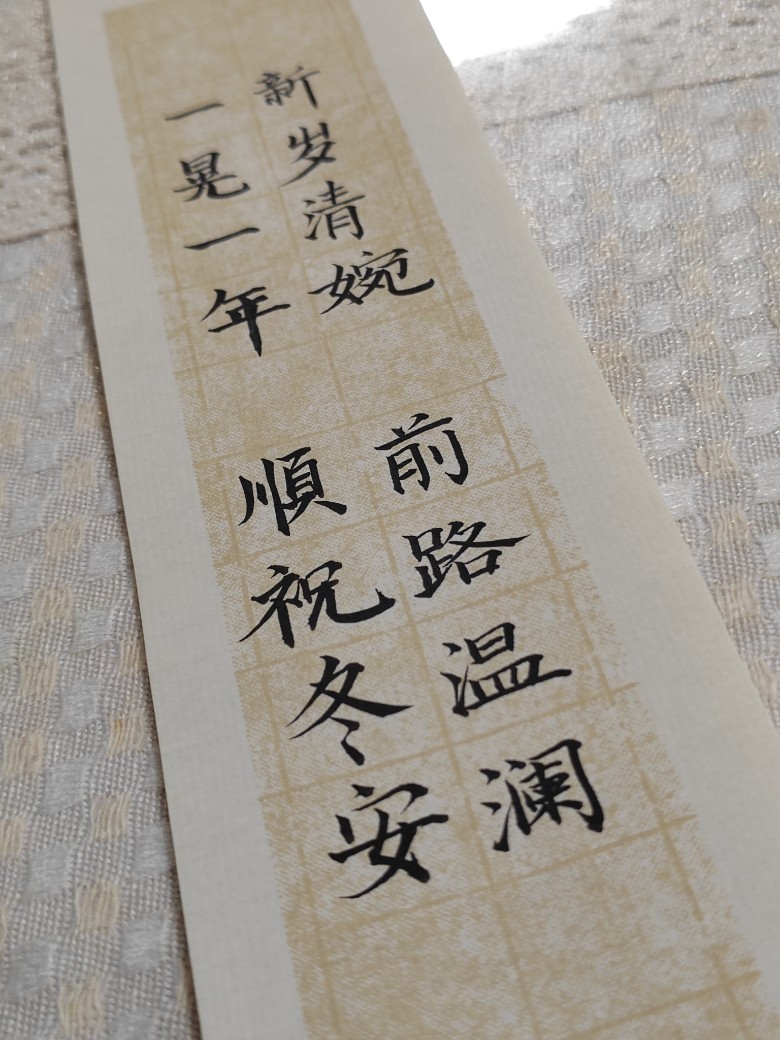 新岁清婉
前路温澜
一晃一年
順祝冬安